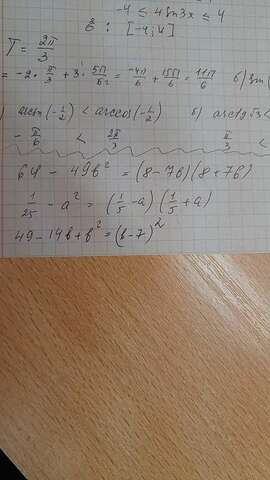 -4 ≤ 4sin3x ≤ 4
: [-4;4]
T = 2π/3
= -2 · π/3 + 3 · 5π/6 = -4π/6 + 15π/6 = 11π/6 б)
) arcsin(-1/2) < arccos(-1/2) б) arctg√3 <
-π/6 < 2π/3 π/3 <
64 - 49b² = (8-7b)(8+7b)
1/25 - a² = (1/5 - a)(1/5 + a)
49 - 14b + b² = (b-7)²